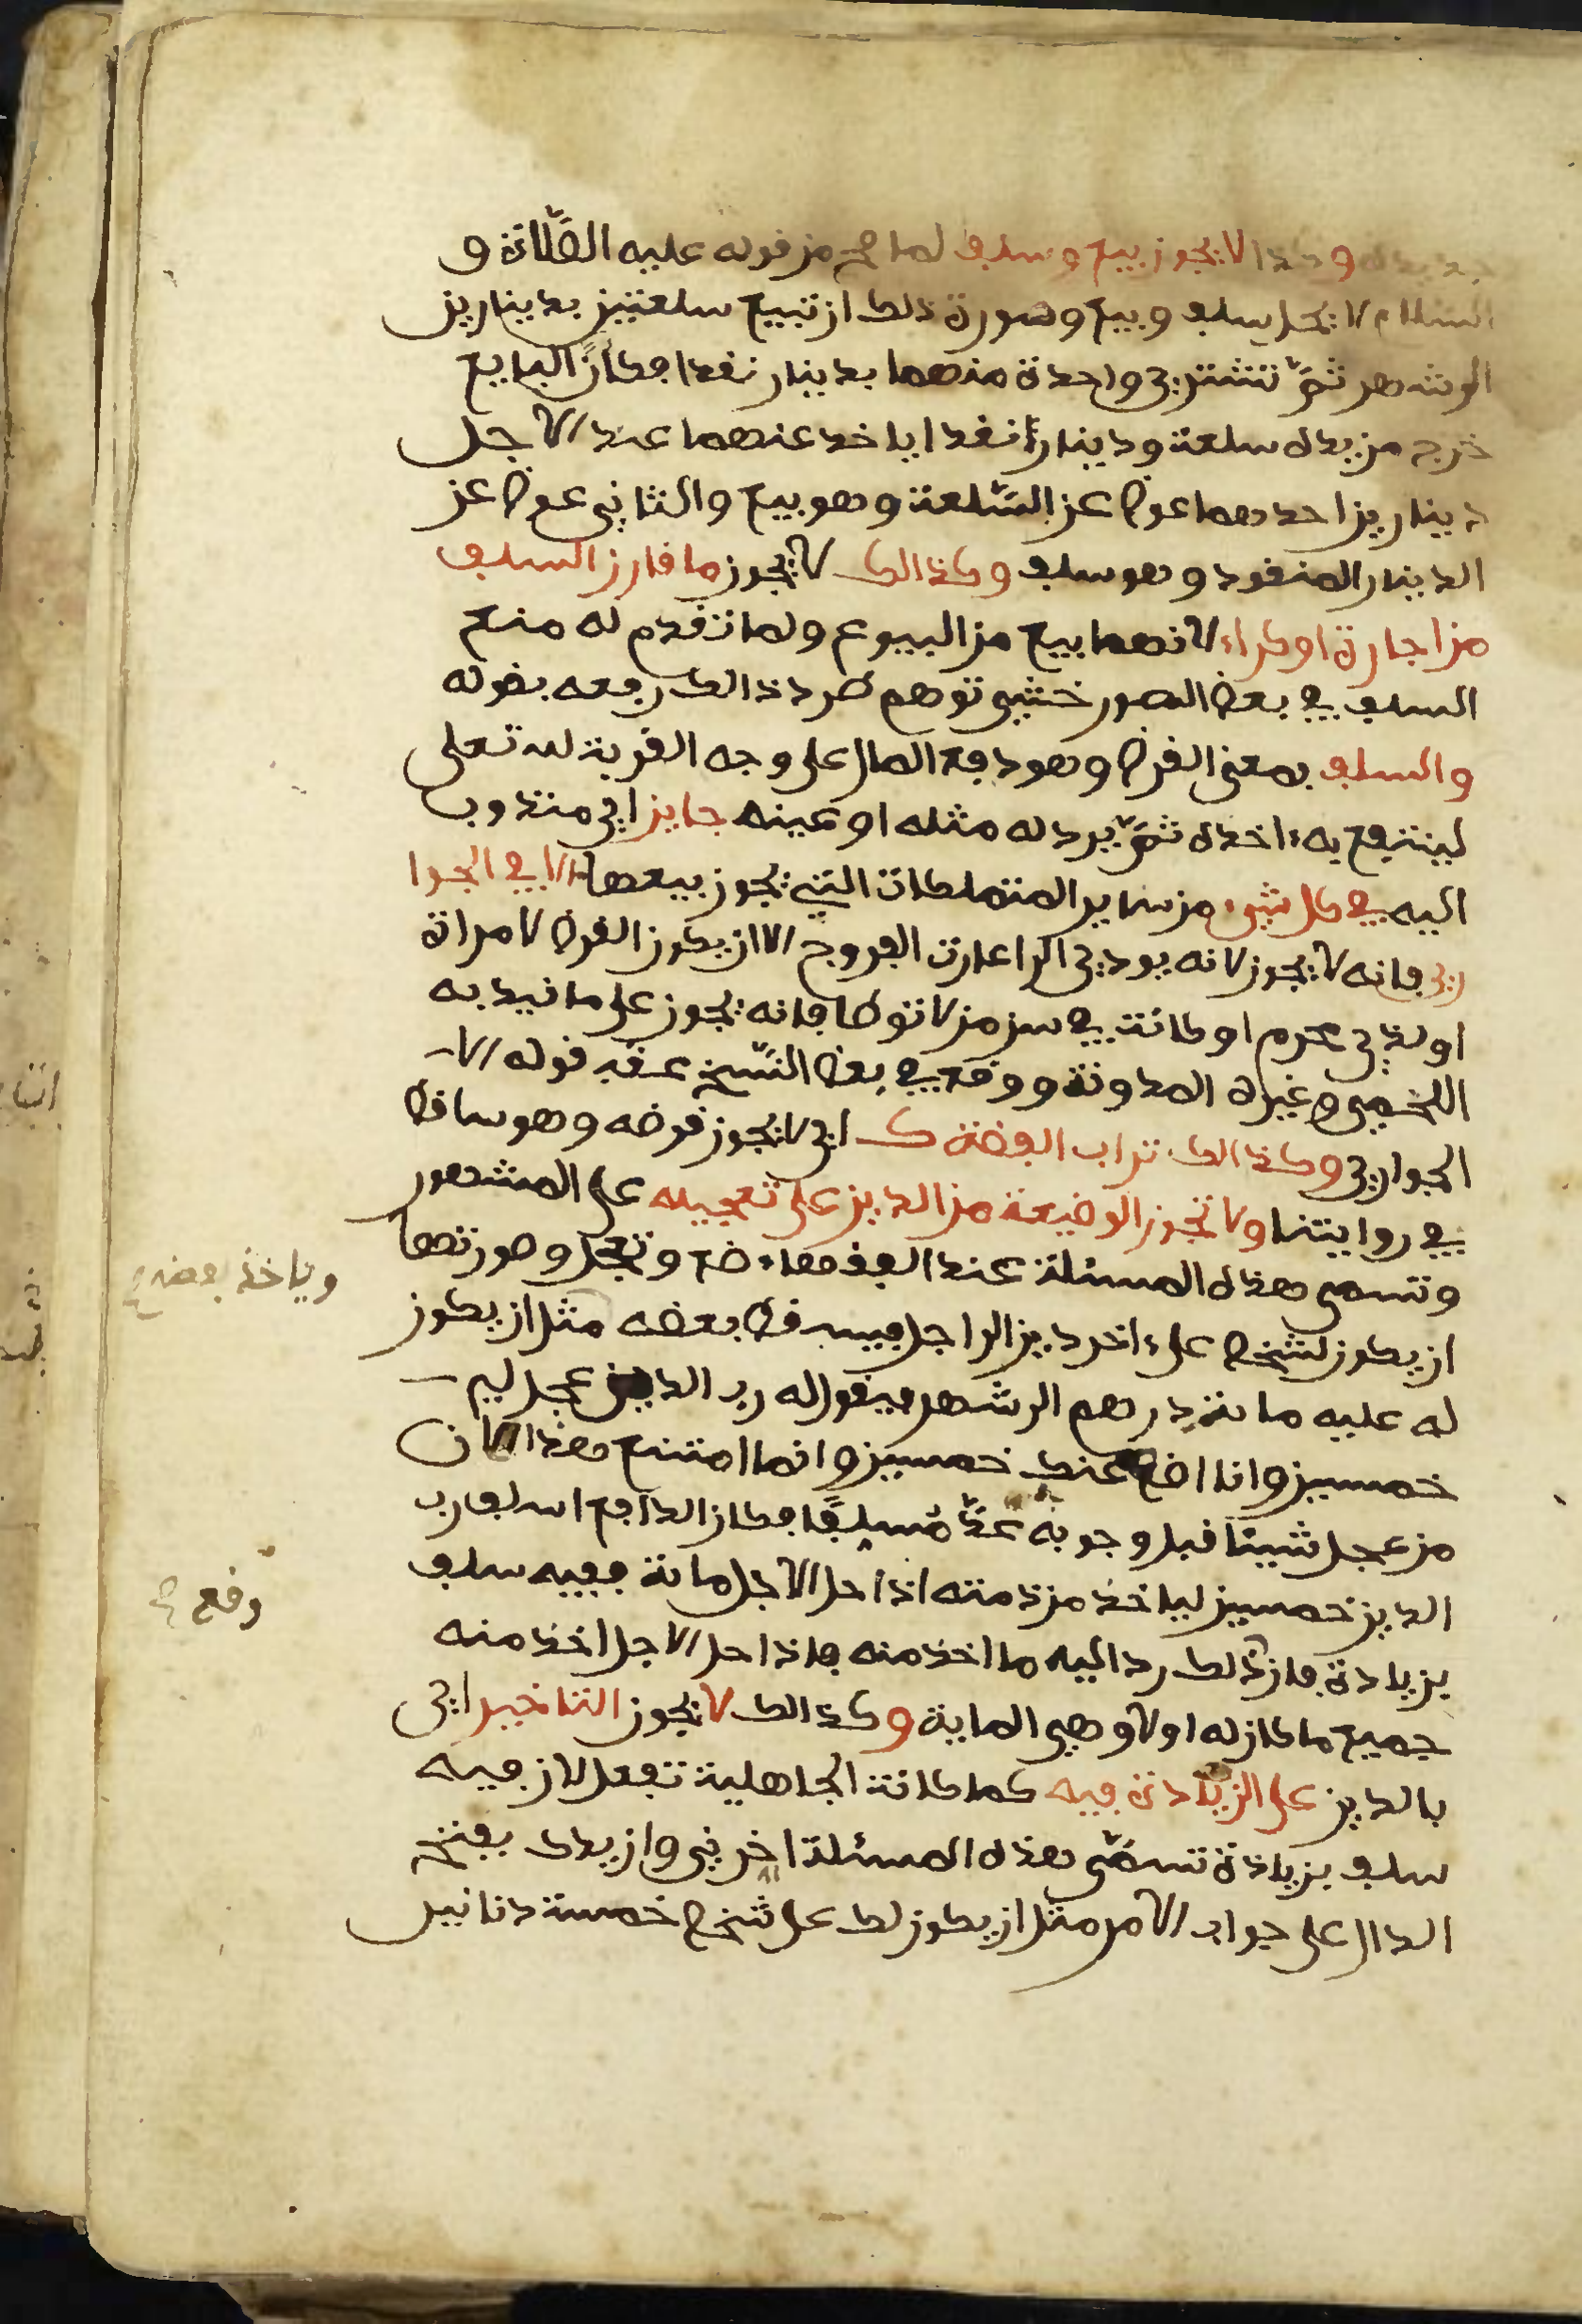 وكذا لا يجوز بيع وسلف لما صح من قوله عليه الصَّلاة و
السلام لا يحل سلف وبيع وصورة ذلك ان تبيع سلعتين بدينارين
الى شهر ثمَّ تشتري واحدة منهما بدينار نقدا فكأنَّ البايع
خرج من يده سلعة ودينارًا نقدا ياخد عنهما عند الاجل
دينارين احدهما عوض عن السَّلعة وهو بيع والثاني عوض عن
الدينار المنقود وهو سلف وكذالك لا يجوز ما قارن السلف
من اجارة او كراء لانهما بيع من البيوع ولما تقدم له منع
السلف في بعض الصور خشي توهم طرد ذالك رفعه بقوله
والسلف بمعنى القرض وهو دفع المال على وجه القربة لله تعلى
لينتفع به ءاخذه ثمَّ يرد له مثله او عينه جايز اي مندوب
اليه في كل شيء من ساير المتملكات التي يجوز بيعها الا في الجوا
ري فانه لا يجوز لانه يودي الى اعارت الفروج الا ان يكون القرض لامراة
او لذي محرم او كانت في سن من لا توطا فانه يجوز على ما قيد به
اللخمي وغيره المدونة ووقع في بعض النَّسخ عقب قوله الا
الجواري وكذالك تراب الفضة ك اي لا يجوز قرضه وهو ساقط
في روايتنا ولا تجوز الوضيعة من الدين على تعجيله على المشهور
وتسمى هذه المسئلة عند الفقهاء ضع وتعجل وصورتها
ان يكون لشخص على ءاخر دين الى اجل فيسقط بعضه مثل ان يكون
وياخذ بعضه ع
له عليه مائة درهم الى شهر فيقول له رب الدين عجل لي
خمسين وانا اضع عنك خمسين وانما امتنع هذا لان
من عجل شيئا قبل وجوبه عدَّ مُسلِفًا فكان الدافع اسلف رب
الدين خمسين لياخذ من ذمته اذا حل الاجل مائة ففيه سلف
وقع ح
بزيادة فان ذلك رد اليه ما اخذ منه فاذا حل الاجل اخذ منه
جميع ما كان له اولا وهي الماية وكذالك لا يجوز التاخير اي
بالدين على الزيادة فيه كما كانت الجاهلية تفعل لان فيه
سلف بزيادة تسمَّى هذه المسئلة اخرني وازيدك بفتح
الدال على جواب الامر مثل ان يكون لك على شخص خمسة دنانير